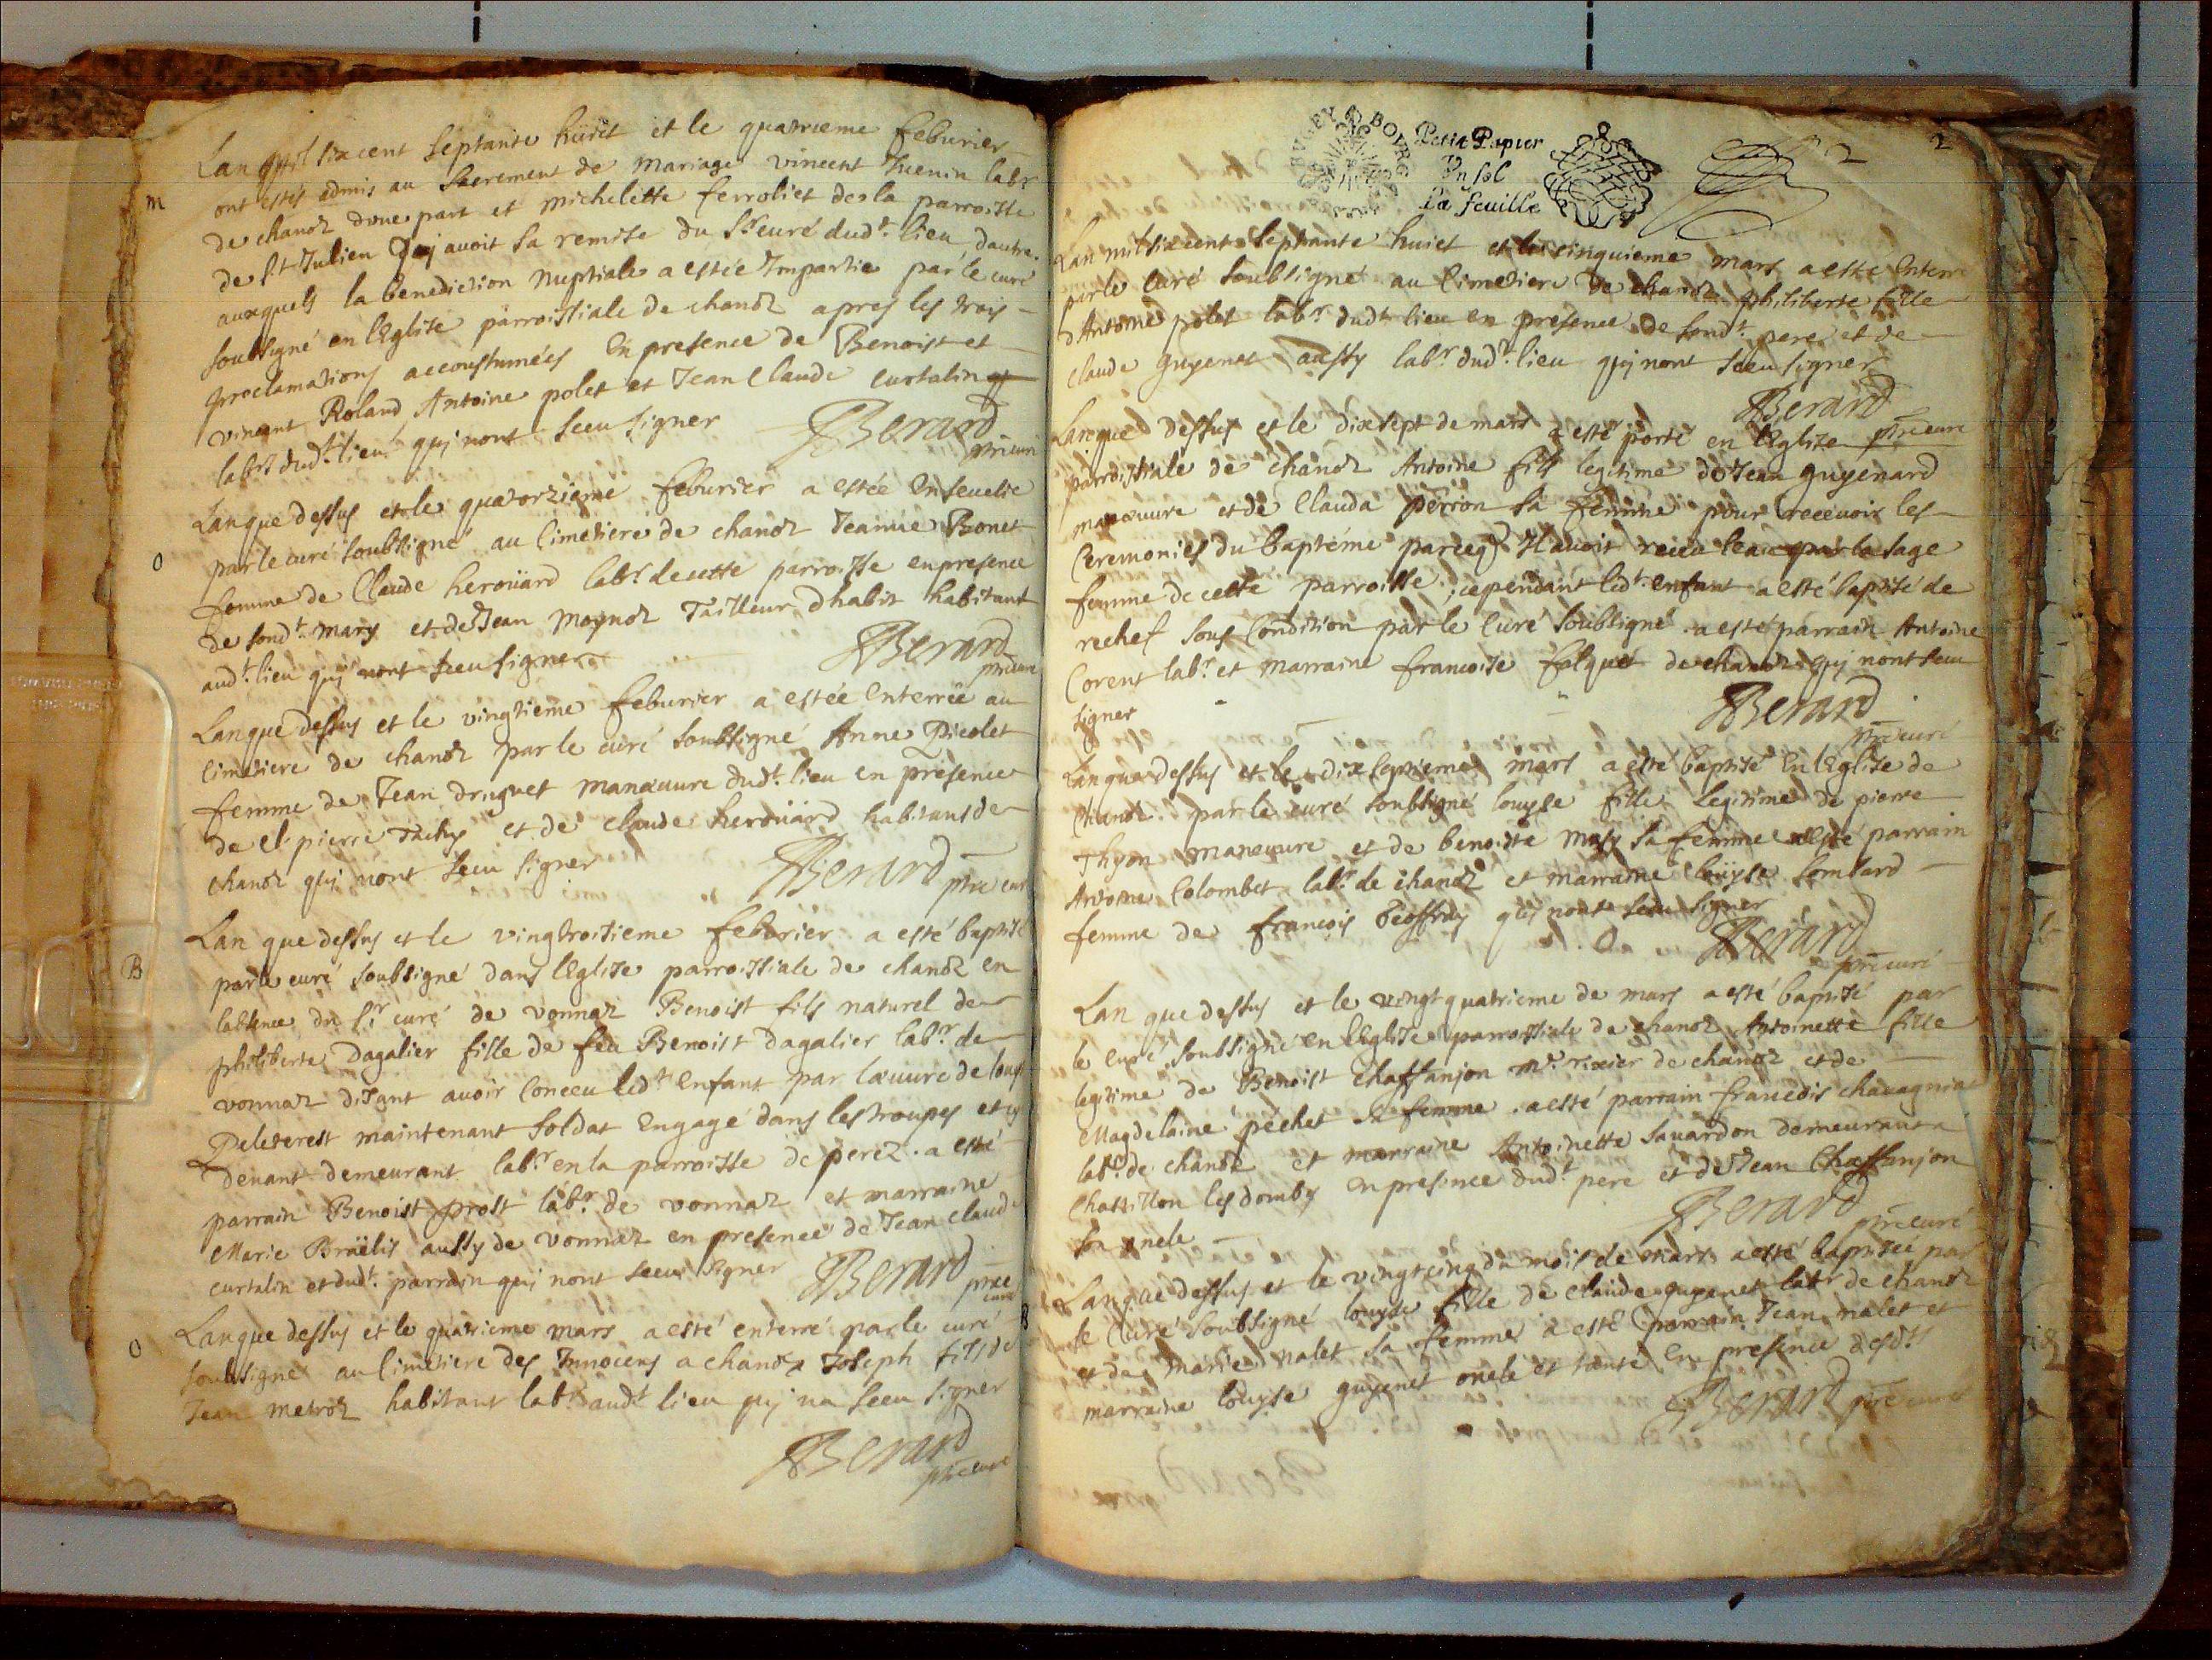 Lan mil sixcent septante huict et le quatrieme feburier
m
ont estés admis au sacrement de mariage vincent Juenin labr
de chanoz dune part et michelette ferroliet de la parroisse
de St Julien qui avoit sa remise du Sr curé dudt. lieu dautre.
auxquels la benediction nuptiale a estée Impartie par le curé
soubsigné en lEglise parroissiale de chanoz apres les trois
proclamations accoustumées En presence de Benoist et
vincent Roland Antoine polet et Jean Claude curtalin
labrs dudt. lieu qui nont sceu signer
Berard
ptre curé
Lan que dessus et le quatorzieme feburier a estée Enseuelie
O
par le curé soubsigné au Cimetiere de chanoz Jeanne Bonet
femme de Claude herouard labr. de cette parroisse en presence
de sondt. mary et de Jean moynoz Tailleur dhabit habitant
audt. lieu qui nont sceu signer
Berard
ptre curé
Lan que dessus et le vingtieme feburier a estée Enterrée au
Cimetiere de chanoz par le curé soubsigné Anne Picolet
femme de Jean druguet manœuure dudt. lieu en presence
de pierre et de claude herouard habitans de
chanoz qui nont sceu signer
Berard
ptre curé
Lan que dessus et le vingtroisieme feburier a esté baptisé
B
par le curé soubsigné dans lEglise parroissiale de chanoz en
labsence du Sr curé de vonnaz Benoist fils naturel de
philiberte Dagalier fille de feu Benoist Dagalier labr. de
vonnaz disant auoir Conceu ledt Enfant par lœuure de louys
Peleterest maintenant soldat Engagé dans les troupes et cy
deuant demeurant labr. en la parroisse de perez. a esté
parrain Benoist prost labr. de vonnaz et marraine
Marie aussy de vonnaz en presence de Jean claude
curtalin et dudt. parrain qui nont sceu signer
Berard
ptre curé
Lan que dessus et le quatrieme mars a esté enterré par le curé
O
soubsigné au Cimetiere des Innocens a chanoz Joseph fils de
Jean metroz habitant labr. audt lieu qui na sceu signer
Berard
ptre curé
BVGEY BOVRG
Petit Papier
Vn sol
La feuille
2
2
Lan mil sixcent septante huict et le cinquieme mars a esté Enterré
par le Curé soubsigné au Cimetiere de chanoz philiberte fille
dAntoine polet labr. dudt. lieu en presence de sondt. pere et de
Claude guyenet aussy labr. dudt. lieu qui nont sceu signer
Berard
ptre curé
Lan que dessus et le dixsept de mars a esté porté en lEglise
parroissiale de chanoz Antoine fils legitime de Jean guyenard
manœuure et de Clauda perron sa femme pour receuoir les
Ceremonies du baptéme parceq Il auoit receu leau par la sage
femme de cette parroisse; cependant ledt. enfant a esté baptisé de
rechef sous Condition par le Curé soubsigné. a esté parrain Antoine
Corent labr. et marraine francoise folquet de chanoz qui nont sceu
signer
Berard
ptre curé
Lan que dessus et le dix septieme mars a esté baptisé En lEglise de
Chanoz par le curé soubsigné louyse fille legitime de pierre
Thyon manœuure et de benoiste sa femme a esté parrain
Antoine Colombet labr. de chanoz et marraine louyse lombard
femme de francois Geoffray qui nont sceu signer
Berard
ptre curé
Lan que dessus et le vingt quatrieme de mars a esté baptisé par
le curé soubsigné en lEglise parroissiale de chanoz Antoinette fille
legitime de Benoist chaffanjon mr. tixier de chanoz et de
Magdelaine péchet sa femme. a esté parrain francois chauagniat
labr. de chanoz et marraine Antoinette sauardon demeurant a
Chastillon les dombes en presence dudt. pere et de Jean Chaffanjon
son oncle
Berard
ptre curé
Lan que dessus et le vingtcinq du mois de mars a esté baptisée par
B
le Curé soubsigné louyse fille de claude guyenet labr. de chanoz
et de marie nalet sa femme a esté parrain Jean nalet et
marraine louyse guyenet oncle et tante En presence desdts
Berard ptre curé